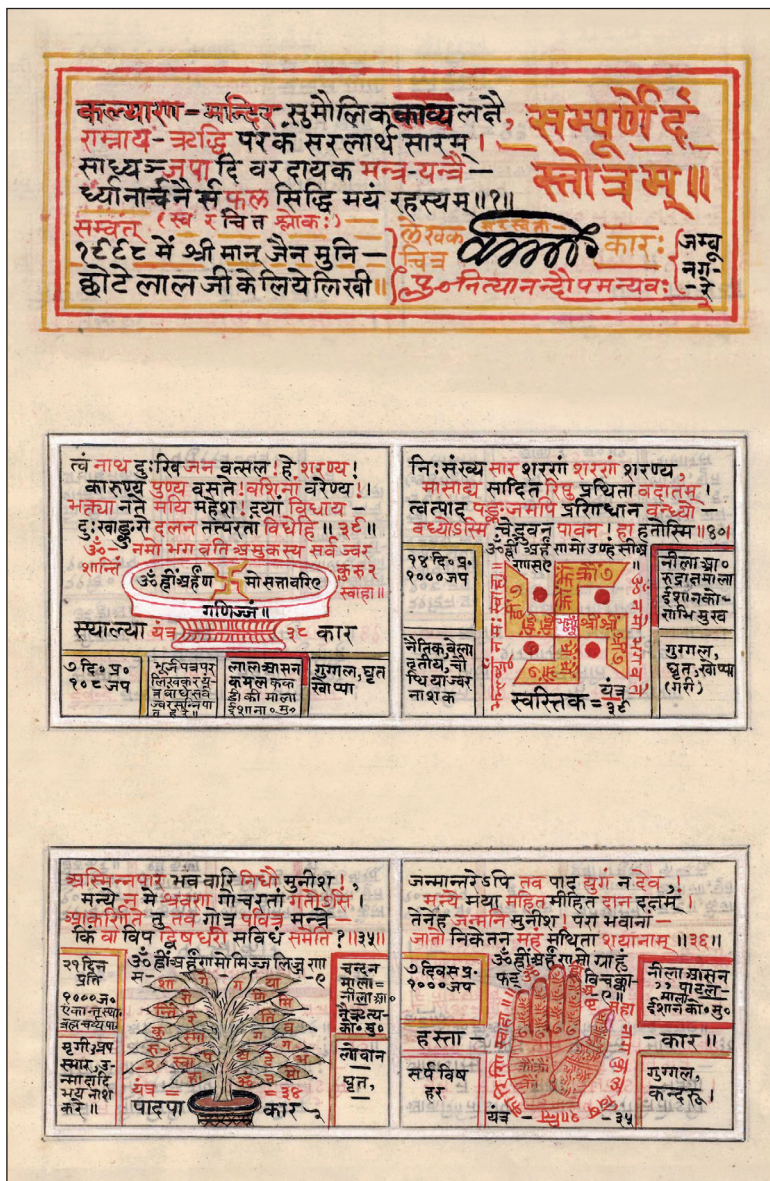 कल्याण=मन्दिर सुमौलिक काव्य लक्षै,
राम्नाय-ऋद्धि परकं सरलार्थ सारम् ।
साध्यञ्जपादि वरदायक मन्त्र-यन्त्रै—
र्ध्यानार्चनै र्स फल सिद्धि मयं रहस्यम् ॥१॥
सम्पूर्णेदं
स्तोत्रम् ॥
सम्वत् (स्व रचित श्लोकः)
१९९८ में श्रीमान् जैन मुनि—
छोटे लाल जी के लिये लिखी ॥
लेखक
चित्र कारः
पु॰ नित्यानन्दौपमन्यवः
जम्बू
नग-
-रे
त्वं नाथ दुःखि जन वत्सल ! हे शरण्य !
कारुण्य पुण्य वसते ! वशिनां वरेण्य ! ।
भक्त्या नते मयि महेश ! दयां विधाय—
दुःखाङ्कुरो दलन तत्परता विधेहि ॥३९॥
ॐ—नमो भगवति अमुकस्य सर्व ज्वर
शान्तिं कुरु २
स्वाहा ॥
ॐ ह्रीं अर्हं ण मो सत्तावरिए
गणिज्जं ॥
स्थाल्या यंत्र ३८ कार
७ दि॰ प्र॰
१०८ जप
भूर्ज पत्र पर
लिखकर यं-
लाल आसन
कमल कक
ड़ी की माला
ईशाना॰ मु॰
गुग्गल, घृत
खोप्पा
निःसंख्य सार शरणं शरणं शरण्य,
मासाद्य सादित रिपु प्रथिता वदातम् ।
त्वत्पाद पङ्कजमपि प्रणिधान वन्ध्यो—
वध्योऽस्मि चेद्भुवन पावन ! हा हतोस्मि ॥४०॥
ॐ ह्रीं अर्हं णमो उण्ह सीअ
णासए
१४ दि॰ प्र॰
१००० जप
नैतिक, बेला
तृतीय, चौ
थिया ज्वर
नाशक
ॐ नमो भगवते
नीला आ॰
रुद्राक्ष माला
ईशान को-
णाभिमुख
गुग्गल,
घृत, खोप्पा
(गरी)
स्वस्तिक = यंत्र
३९
अस्मिन्नपार भव वारि निधौ मुनीश !,
मन्ये न मे श्रवण गोचरतां गतोऽसि ।
आकर्णिते तु तव गोत्र पवित्र मन्त्रे—
किं वा विपद्विषधरी सविधं समेति ? ॥३५॥
ॐ ह्रीं अर्हं णमो मिज्ज लिज्ज णास-
-ए
२१ दिन
प्रति
१००० ज॰
मृगी, अप
स्मार, उ-
न्मादादि
भय नाश
करे ॥
चन्दन
माला=
नीला आ॰
नैऋत्य-
को॰ मु॰
लोबान
घृत,
यंत्र = = ३४
पादपा कार
जन्मान्तरेऽपि तव पाद युगं न देव,!
मन्ये मया महित मीहित दान दक्षम् ।
तेनेह जन्मनि मुनीश ! परा भवानां—
जातो निकेतन महं मथिता शयानाम् ॥३६॥
ॐ ह्रीं अर्हं णमो ग्राहं
फट् विचक्का
-ए ॥
७ दिवस प्र॰
१००० जप
नीला आसन
,, पादल-
माला
ईशान को॰ मु॰
हस्ता— —कार ॥
सर्प विष
हर
गुग्गल,
कन्दरू ।
यंत्र — —३५